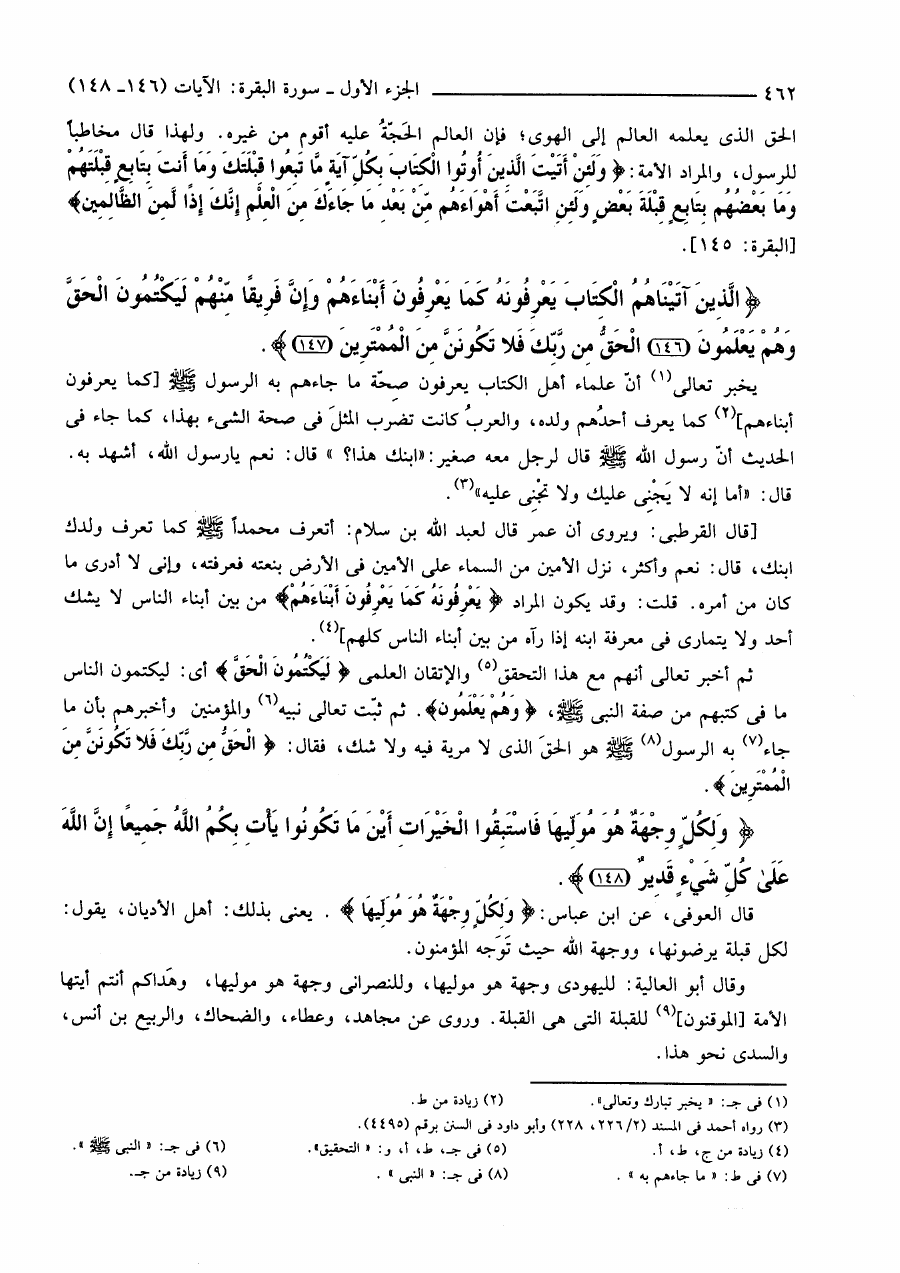 ٤٦٢ ـــــــــــــــــ الجزء الأول ـ سورة البقرة: الآيات (١٤٦ـ ١٤٨)
الحق الذى يعلمه العالم إلى الهوى؛ فإن العالم الحَجّةُ عليه أقوم من غيره. ولهذا قال مخاطباً
للرسول، والمراد الأمة: ﴿ وَلَئِنْ أَتَيْتَ الَّذِينَ أُوتُوا الْكِتَابَ بِكُلِّ آيَةٍ مَّا تَبِعُوا قِبْلَتَكَ وَمَا أَنتَ بِتَابِعٍ قِبْلَتَهُمْ
وَمَا بَعْضُهُم بِتَابِعٍ قِبْلَةَ بَعْضٍ وَلَئِنِ اتَّبَعْتَ أَهْوَاءَهُم مِّنْ بَعْدِ مَا جَاءَكَ مِنَ الْعِلْمِ إِنَّكَ إِذًا لَّمِنَ الظَّالِمِين﴾
[البقرة: ١٤٥].
﴿ الَّذِينَ آتَيْنَاهُمُ الْكِتَابَ يَعْرِفُونَهُ كَمَا يَعْرِفُونَ أَبْنَاءَهُمْ وَإِنَّ فَرِيقًا مِّنْهُمْ لَيَكْتُمُونَ الْحَقَّ
وَهُمْ يَعْلَمُونَ (١٤٦) الْحَقُّ مِن رَّبِّكَ فَلا تَكُونَنَّ مِنَ الْمُمْتَرِينَ (١٤٧) ﴾ .
يخبر تعالى(١) أنّ علماء أهل الكتاب يعرفون صحّة ما جاءهم به الرسول ﷺ [كما يعرفون
أبناءهم](٢) كما يعرف أحدُهم ولده، والعربُ كانت تضرب المثلَ فى صحة الشىء بهذا، كما جاء فى
الحديث أنّ رسول الله ﷺ قال لرجل معه صغير: «ابنك هذا؟ » قال: نعم يارسول الله، أشهد به.
قال: «أما إنه لا يَجْنِى عليك ولا تجْنِى عليه»(٣).
[قال القرطبى: ويروى أن عمر قال لعبد الله بن سلام: أتعرف محمداً ﷺ كما تعرف ولدك
ابنك، قال: نعم وأكثر، نزل الأمين من السماء على الأمين فى الأرض بنعته فعرفته، وإنى لا أدرى ما
كان من أمره. قلت: وقد يكون المراد ﴿ يَعْرِفُونَهُ كَمَا يَعْرِفُونَ أَبْنَاءَهُمْ﴾ من بين أبناء الناس لا يشك
أحد ولا يتمارى فى معرفة ابنه إذا رآه من بين أبناء الناس كلهم](٤).
ثم أخبر تعالى أنهم مع هذا التحقق(٥) والإتقان العلمى ﴿ لَيَكْتُمُونَ الْحَقَّ ﴾ أى: ليكتمون الناس
ما فى كتبهم من صفة النبى ﷺ، ﴿ وَهُمْ يَعْلَمُون﴾. ثم ثبّت تعالى نبيه(٦) والمؤمنين وأخبرهم بأن ما
جاء(٧) به الرسول(٨) ﷺ هو الحقَ الذى لا مرية فيه ولا شك، فقال: ﴿ الْحَقُّ مِن رَّبِّكَ فَلا تَكُونَنَّ مِنَ
الْمُمْتَرِينَ ﴾ .
﴿ وَلِكُلٍّ وِجْهَةٌ هُوَ مُوَلِّيهَا فَاسْتَبِقُوا الْخَيْرَاتِ أَيْنَ مَا تَكُونُوا يَأْتِ بِكُمُ اللَّهُ جَمِيعًا إِنَّ اللَّهَ
عَلَىٰ كُلِّ شَيْءٍ قَدِيرٌ (١٤٨) ﴾ .
قال العوفى، عن ابن عباس: ﴿ وَلِكُلٍّ وِجْهَةٌ هُوَ مُوَلِّيهَا ﴾ . يعنى بذلك: أهل الأديان، يقول:
لكل قبلة يرضونها، ووجهة الله حيث تَوَجه المؤمنون.
وقال أبو العالية: لليهودى وجهة هو موليها، وللنصرانى وجهة هو موليها، وهَداكم أنتم أيتها
الأمة [الموقنون](٩) للقبلة التى هى القبلة. وروى عن مجاهد، وعطاء، والضحاك، والربيع بن أنس،
والسدى نحو هذا.
(١) فى جـ: « يخبر تبارك وتعالى». (٢) زيادة من ط.
(٣) رواه أحمد فى المسند (٢٢٦/٢، ٢٢٨) وأبو داود فى السنن برقم (٤٤٩٥).
(٤) زيادة من ج، ط، أ. (٥) فى جـ، ط، أ، و: « التحقيق». (٦) فى جـ: « النبى ﷺ ».
(٧) فى ط: « ما جاءهم به » . (٨) فى جـ: « النبى » . (٩) زيادة من جـ.